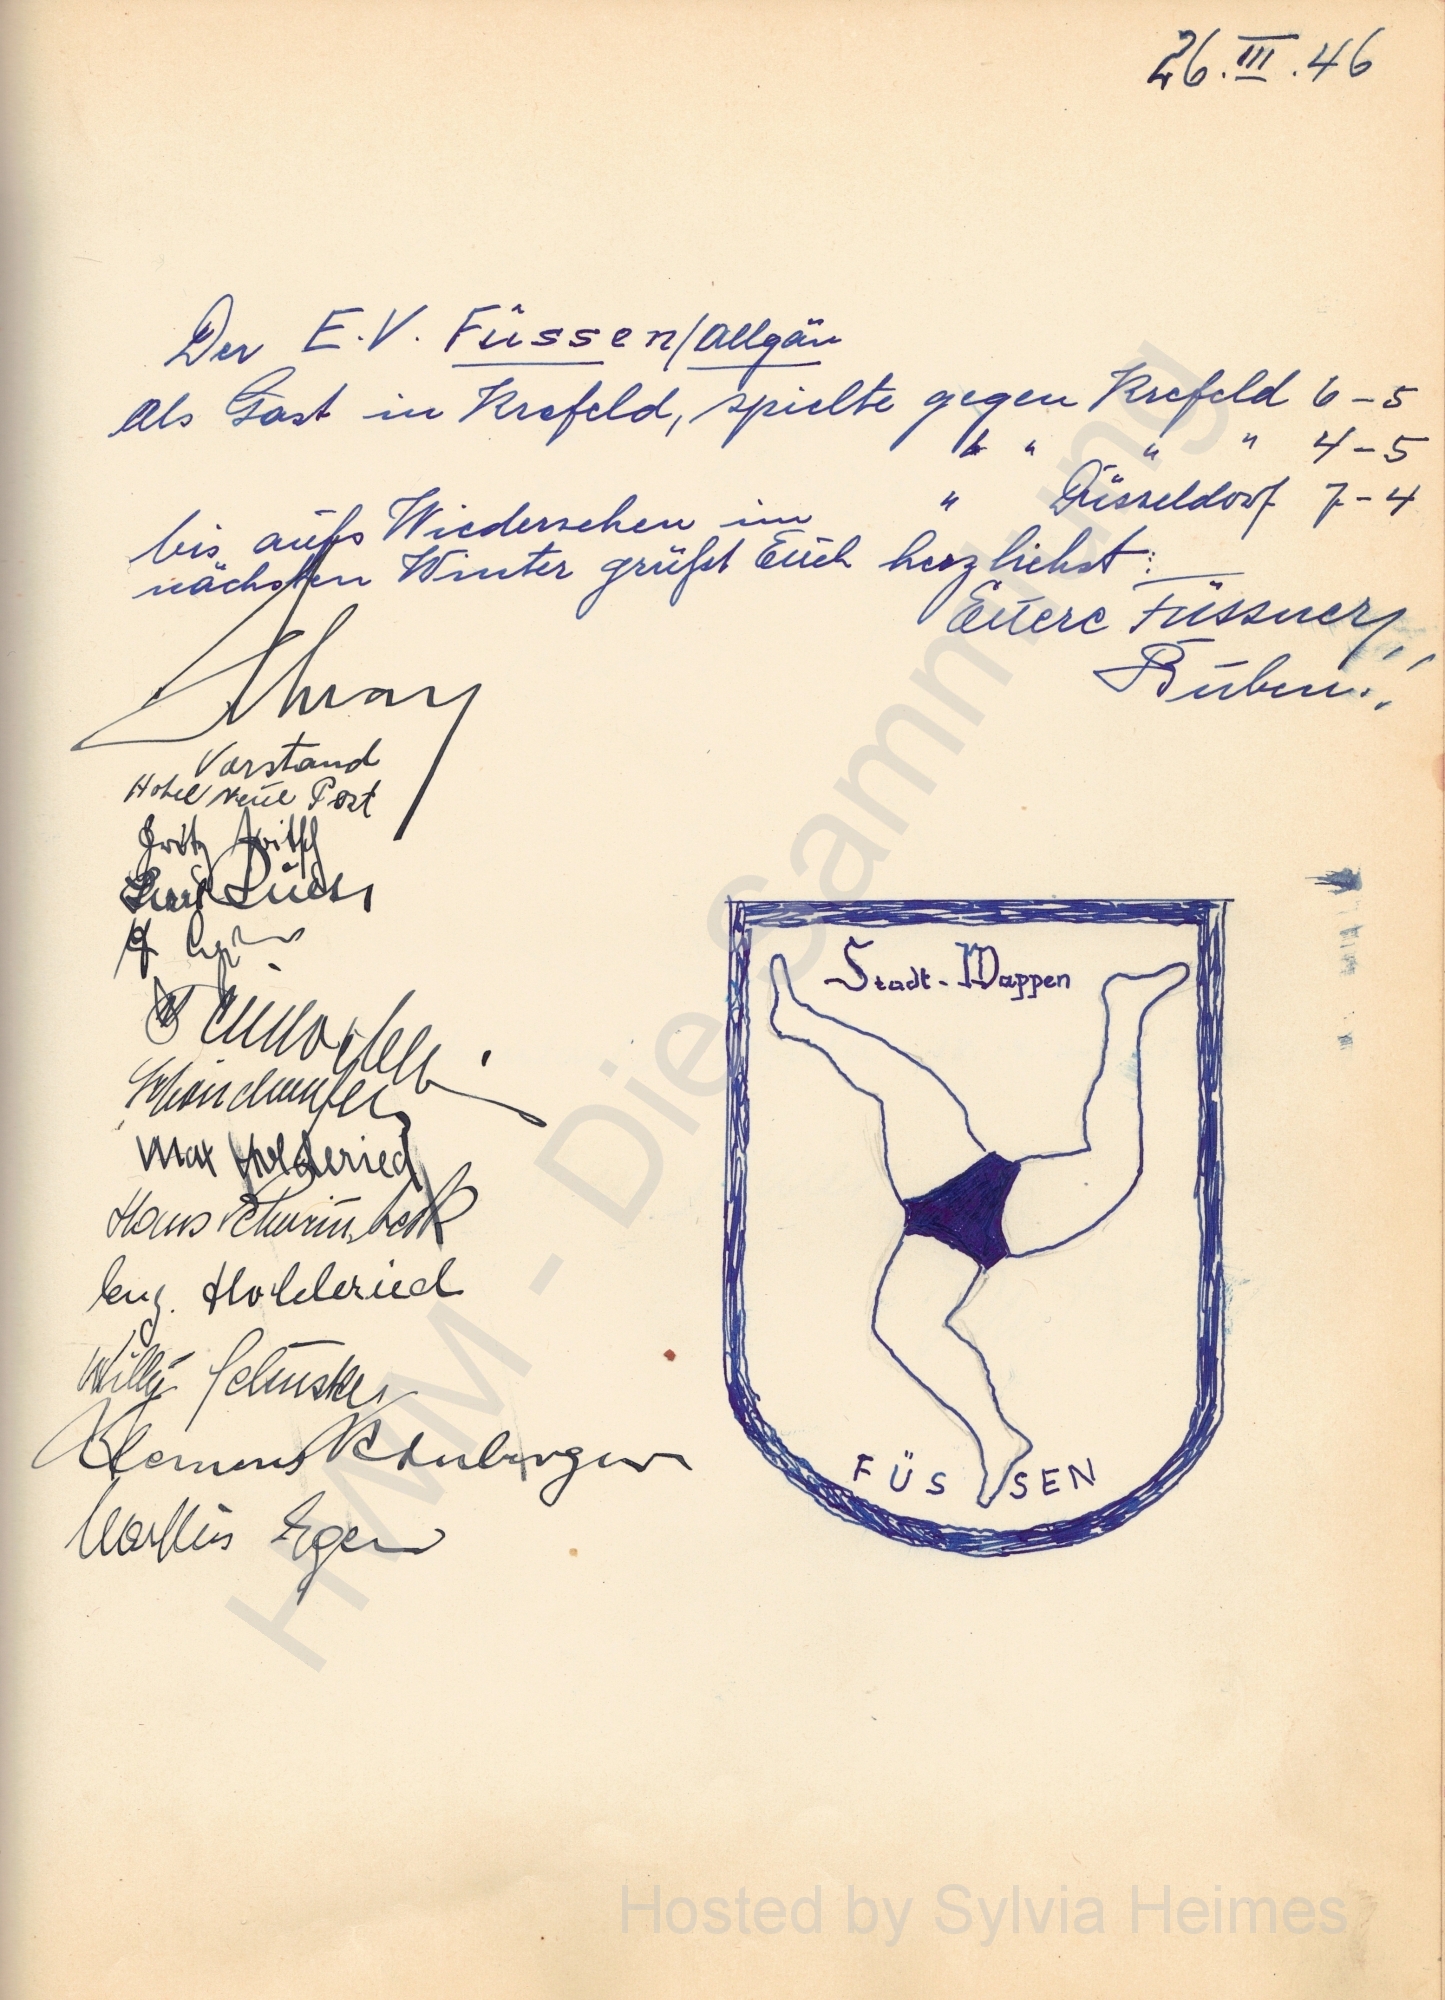 26.III.46
Der E.V. Füssen/Allgäu
als Gast in Krefeld, spielte gegen Krefeld 6-5
" " " " 4-5
" Düsseldorf 7-4
bis aufs Wiedersehen im
nächsten Winter grüßt Euch herzlichst:
Euere Füssner
Buben!
Vorstand
Hotel neue Post
Fritz
Max Holderied
Hans
Eug. Holderied
Willy
Klemens
Martin Egen
Stadt-Wappen
FÜSSEN
HWM - Die Sammlung
Hosted by Sylvia Heimes